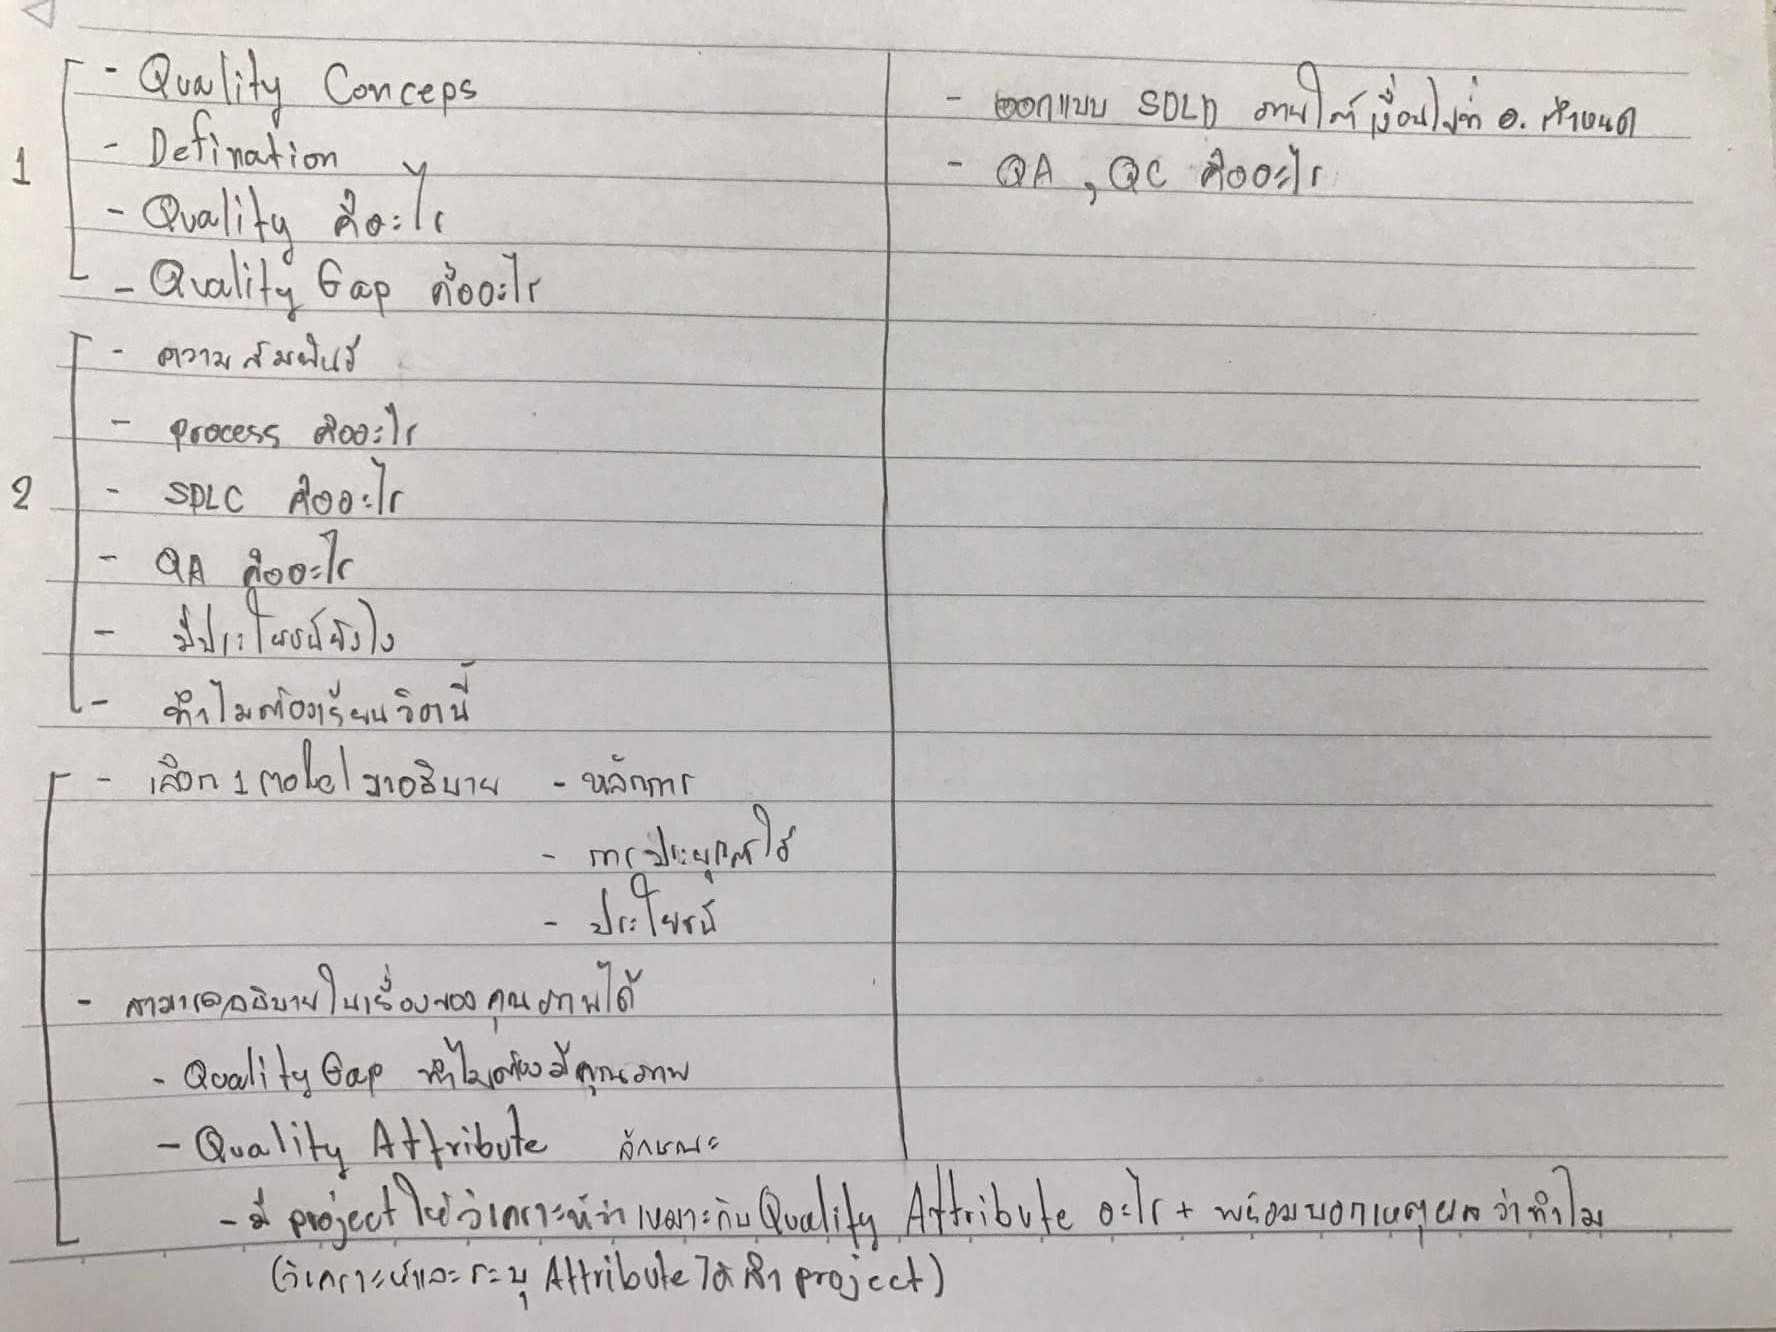 - Quality Conceps
- Defination
1
- Quality คืออะไร
- Quality Gap คืออะไร
- ความสัมพันธ์
- process คืออะไร
2
- SDLC คืออะไร
- QA คืออะไร
- มีประโยชน์ยังไง
- ทำไมต้องเรียนวิชานี้
- เลือก 1 model มาอธิบาย - หลักการ
- การประยุกต์ใช้
- ประโยชน์
- สามารถอธิบายในเรื่องของคุณภาพได้
- Quality Gap ทำไมต้องมีคุณภาพ
- Quality Attribute ลักษณะ
- มี project ให้วิเคราะห์ว่าเหมาะกับ Quality Attribute อะไร + พร้อมบอกเหตุผลว่าทำไม
(วิเคราะห์และระบุ Attribute ได้ project)
- ออกแบบ SDLD ภายใต้เงื่อนไขที่ อ. กำหนด
- QA , QC คืออะไร